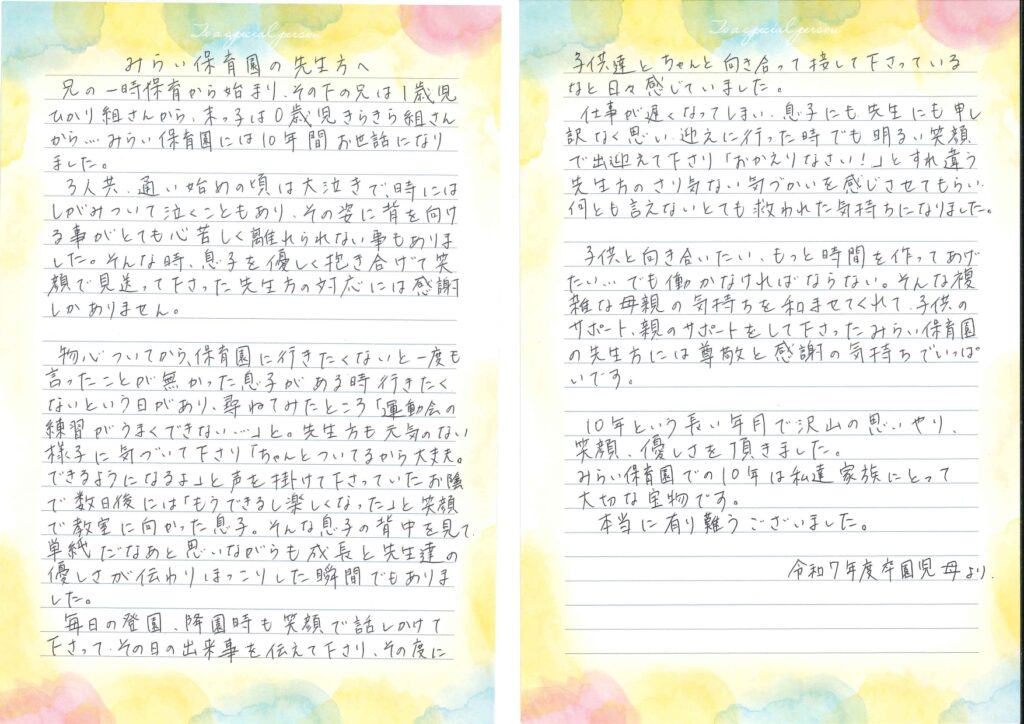 To a special person
みらい保育園の先生方へ
兄の一時保育から始まり、その下の兄は1歳児
ひかり組さんから、末っ子は0歳児きらきら組さん
から…みらい保育園には10年間お世話になり
ました。
3人共、通い始めの頃は大泣きで、時には
しがみついて泣くこともあり、その姿に背を向け
る事がとても心苦しく離れられない事もありま
した。そんな時、息子を優しく抱き合げて笑
顔で見送って下さった先生方の対応には感謝
しかありません。
物心ついてから、保育園に行きたくないと一度も
言ったことが無かった息子がある時行きたく
ないという日があり、尋ねてみたところ「運動会の
練習がうまくできない…」と。先生方も元気のない
様子に気づいて下さり「ちゃんとついてるから大丈夫。
できるようになるよ」と声を掛けて下さっていたお陰
で数日後には「もうできるし楽しくなった」と笑顔
で教室に向かった息子。そんな息子の背中を見て、
単純だなあと思いながらも成長と先生達の
優しさが伝わりほっこりした瞬間でもありま
した。
毎日の登園、降園時も笑顔で話しかけて
下さって、その日の出来事を伝えて下さり、その度に
To a special person
子供達とちゃんと向き合って接して下さっている
なと日々感じていました。
仕事が遅くなってしまい、息子にも先生にも申し
訳なく思い、迎えに行った時でも明るい笑顔
で出迎えて下さり「おかえりなさい!」とすれ違う
先生方のさり気ない気づかいを感じさせてもらい、
何とも言えないとても救われた気持ちになりました。
子供と向き合いたい、もっと時間を作ってあげ
たい…でも働かなければならない。そんな複
雑な母親の気持ちを和ませてくれて、子供の
サポート、親のサポートをして下さったみらい保育園
の先生方には尊敬と感謝の気持ちでいっぱ
いです。
10年という長い年月で沢山の思いやり、
笑顔、優しさを頂きました。
みらい保育園での10年は私達家族にとって
大切な宝物です。
本当に有り難うございました。
令和7年度卒園児母より